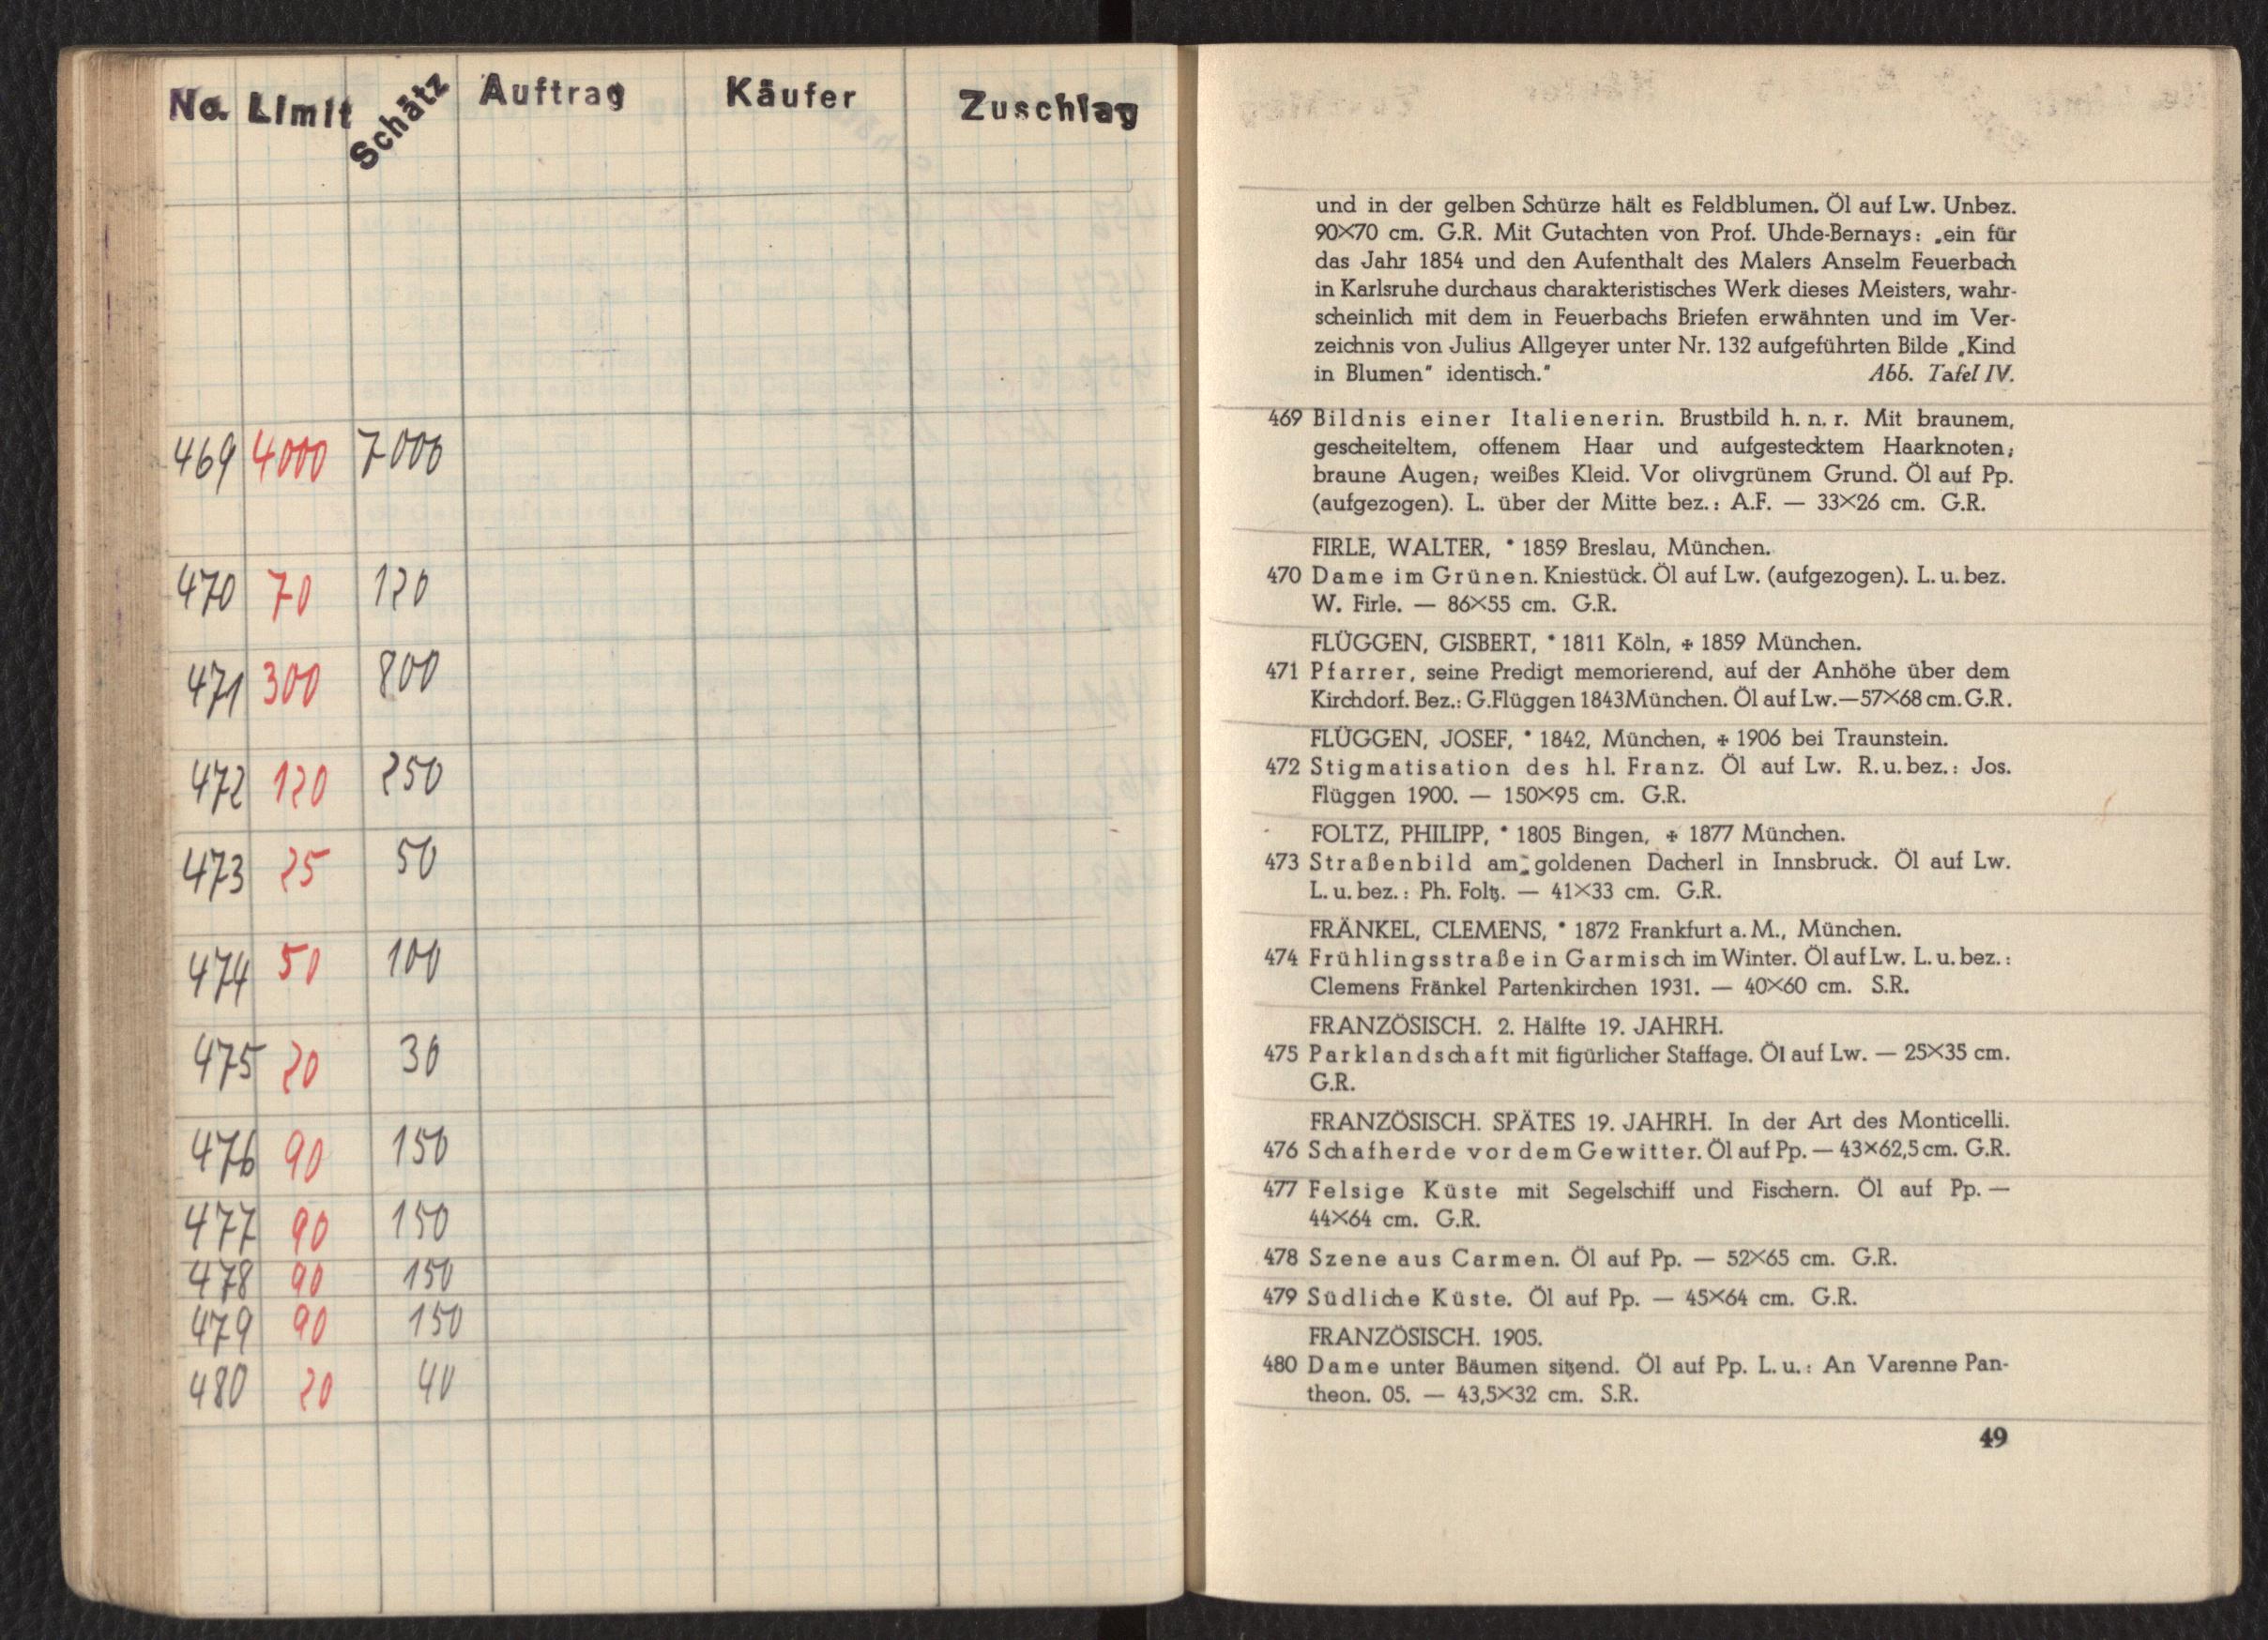 No. Limit Schätz Auftrag Käufer Zuschlag
469 4000 7000
470 70 120
471 300 800
472 120 250
473 25 50
474 50 100
475 20 30
476 90 150
477 90 150
478 90 150
479 90 150
480 20 40
und in der gelben Schürze hält es Feldblumen. Öl auf Lw. Unbez.
90×70 cm. G.R. Mit Gutachten von Prof. Uhde-Bernays: „ein für
das Jahr 1854 und den Aufenthalt des Malers Anselm Feuerbach
in Karlsruhe durchaus charakteristisches Werk dieses Meisters, wahr-
scheinlich mit dem in Feuerbachs Briefen erwähnten und im Ver-
zeichnis von Julius Allgeyer unter Nr. 132 aufgeführten Bilde „Kind
in Blumen" identisch." Abb. Tafel IV.
469 Bildnis einer Italienerin. Brustbild h. n. r. Mit braunem,
gescheiteltem, offenem Haar und aufgestecktem Haarknoten;
braune Augen; weißes Kleid. Vor olivgrünem Grund. Öl auf Pp.
(aufgezogen). L. über der Mitte bez.: A.F. — 33×26 cm. G.R.
FIRLE, WALTER, * 1859 Breslau, München.
470 Dame im Grünen. Kniestück. Öl auf Lw. (aufgezogen). L. u. bez.
W. Firle. — 86×55 cm. G.R.
FLÜGGEN, GISBERT, * 1811 Köln, ✠ 1859 München.
471 Pfarrer, seine Predigt memorierend, auf der Anhöhe über dem
Kirchdorf. Bez.: G.Flüggen 1843München. Öl auf Lw.—57×68 cm. G.R.
FLÜGGEN, JOSEF, * 1842, München, ✠ 1906 bei Traunstein.
472 Stigmatisation des hl. Franz. Öl auf Lw. R. u. bez.: Jos.
Flüggen 1900. — 150×95 cm. G.R.
FOLTZ, PHILIPP, * 1805 Bingen, ✠ 1877 München.
473 Straßenbild am goldenen Dacherl in Innsbruck. Öl auf Lw.
L. u. bez.: Ph. Foltz. — 41×33 cm. G.R.
FRÄNKEL, CLEMENS, * 1872 Frankfurt a. M., München.
474 Frühlingsstraße in Garmisch im Winter. Öl auf Lw. L. u. bez.:
Clemens Fränkel Partenkirchen 1931. — 40×60 cm. S.R.
FRANZÖSISCH. 2. Hälfte 19. JAHRH.
475 Parklandschaft mit figürlicher Staffage. Öl auf Lw. — 25×35 cm.
G.R.
FRANZÖSISCH. SPÄTES 19. JAHRH. In der Art des Monticelli.
476 Schafherde vor dem Gewitter. Öl auf Pp. — 43×62,5 cm. G.R.
477 Felsige Küste mit Segelschiff und Fischern. Öl auf Pp. —
44×64 cm. G.R.
478 Szene aus Carmen. Öl auf Pp. — 52×65 cm. G.R.
479 Südliche Küste. Öl auf Pp. — 45×64 cm. G.R.
FRANZÖSISCH. 1905.
480 Dame unter Bäumen sitzend. Öl auf Pp. L. u.: An Varenne Pan-
theon. 05. — 43,5×32 cm. S.R.
49